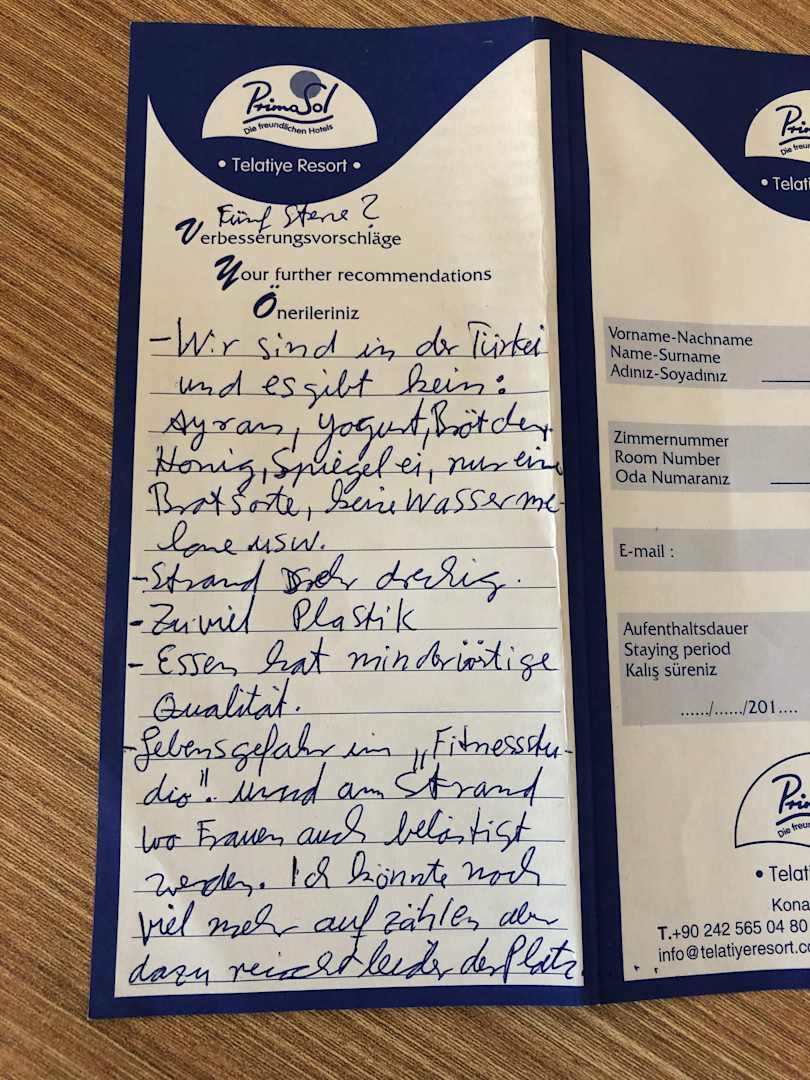 PrimaSol
Die freundlichen Hotels
• Telatiye Resort •
Fünf Sterne ?
Verbesserungsvorschläge
Your further recommendations
Önerileriniz
- Wir sind in der Türkei
und es gibt kein:
Ayran, Yogurt, Brötchen
Honig, Spiegelei, nur eine
Brotsorte, keine Wasserme-
lone usw.
- Strand sehr dreckig.
- Zuviel Plastik
- Essen hat minderwärtige
Qualität.
- Lebensgefahr im „Fitnesstu-
dio". und am Strand
wo Frauen auch belästigt
werden. Ich könnte noch
viel mehr aufzählen aber
dazu reicht leider der Platz
Pri
Die freu
• Telati
Vorname-Nachname
Name-Surname
Adınız-Soyadınız
Zimmernummer
Room Number
Oda Numaranız
E-mail :
Aufenthaltsdauer
Staying period
Kalış süreniz
....../....../201....
Pri
Die freu
• Telat
Kona
T.+90 242 565 04 80
info@telatiyeresort.co